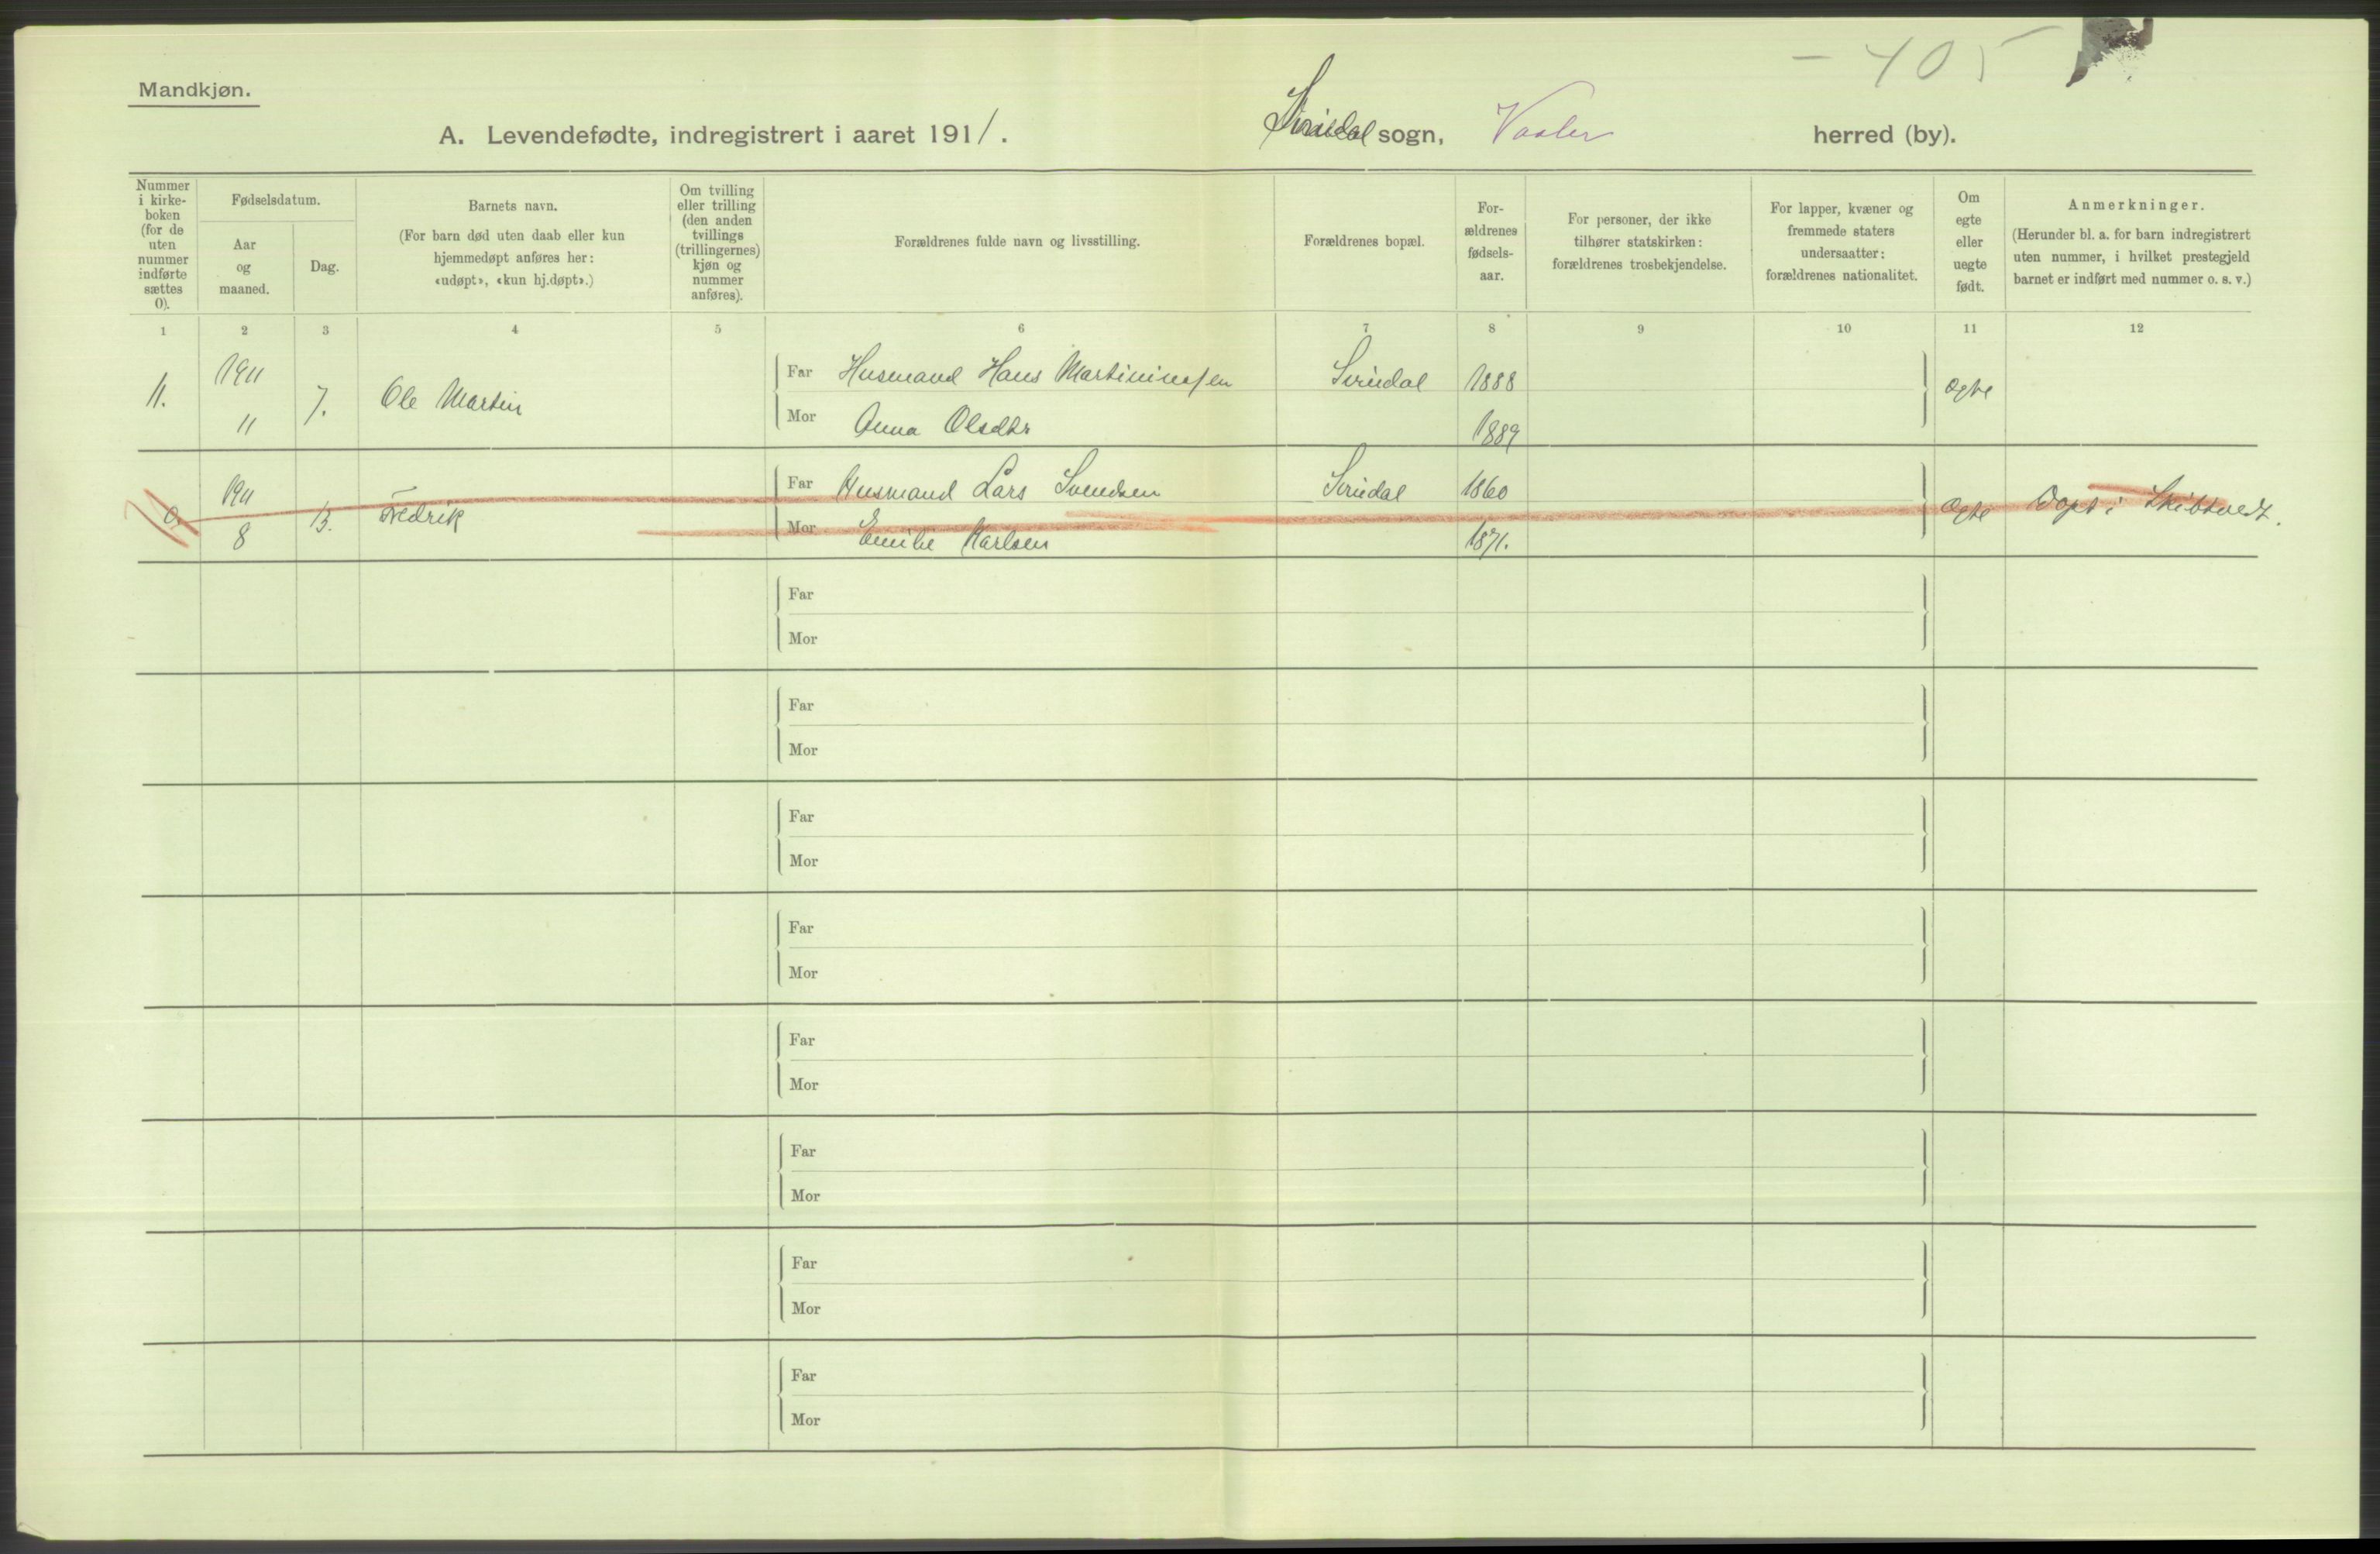 - 405
Mandkjøn.
A. Levendefødte, indregistrert i aaret 1911. Svindal sogn, Vaaler herred (by).
Nummer i kirke-boken (for de uten nummer indførte sættes 0).
Fødselsdatum.
Aar og maaned.
Dag.
Barnets navn.
(For barn død uten daab eller kun hjemmedøpt anføres her: «udøpt», «kun hj.døpt».)
Om tvilling eller trilling (den anden tvillings (trillingernes) kjøn og nummer anføres).
Forældrenes fulde navn og livsstilling.
Forældrenes bopæl.
For-ældrenes fødsels-aar.
For personer, der ikke tilhører statskirken: forældrenes trosbekjendelse.
For lapper, kvæner og fremmede staters undersaatter: forældrenes nationalitet.
Om egte eller uegte født.
Anmerkninger.
(Herunder bl. a. for barn indregistrert uten nummer, i hvilket prestegjeld barnet er indført med nummer o. s. v.)
1 2 3 4 5 6 7 8 9 10 11 12
11. 1911 11 7. Ole Martin Far Husmand Hans Martiniussen Svindal 1888 Egte
Mor Anna Olsdtr 1889
0. 1911 8 13. Fredrik Far Husmand Lars Svendsen Svindal 1860 Egte Døpt i Skibtvedt.
Mor Emilie Karlsen 1871.
Far
Mor
Far
Mor
Far
Mor
Far
Mor
Far
Mor
Far
Mor
Far
Mor
Far
Mor